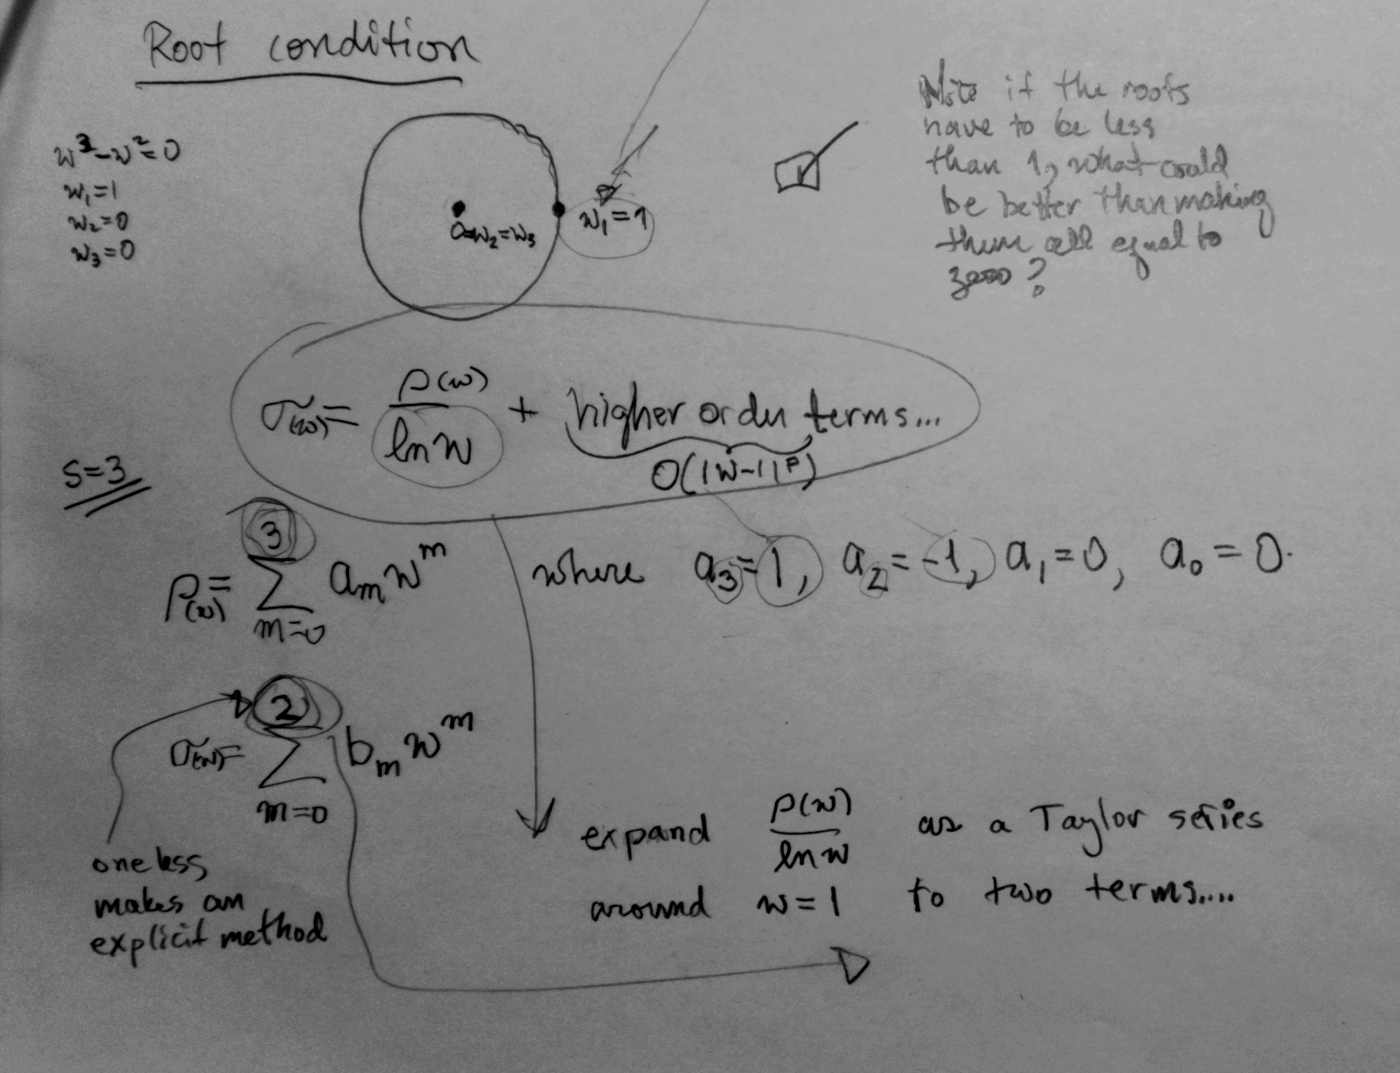 Root condition
w³-w²=0
w₁=1
w₂=0
w₃=0
0=w₂=w₃
w₁=1
Note if the roots
have to be less
than 1, what could
be better than making
them all equal to
zero?
σ(w)= ρ(w)/ln w + higher order terms...
O(|w-1|^p)
S=3
ρ(w)= 3 Σ m=0 aₘwᵐ where a₃=1, a₂=-1, a₁=0, a₀=0.
σ(w)= 2 Σ m=0 bₘwᵐ
one less
makes an
explicit method
expand ρ(w)/ln w as a Taylor series
around w=1 to two terms....